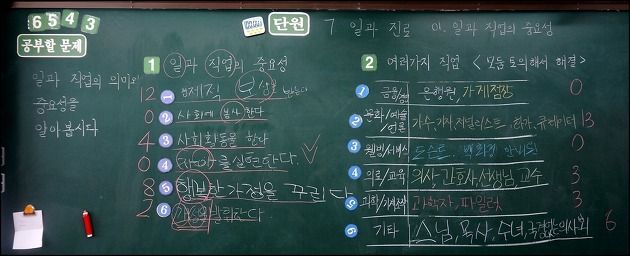 6 5 4 3
단원 7 일과 진로 01. 일과 직업의 중요성
공부할 문제
일과 직업의 의미와
중요성을
알아봅시다
1 일과 직업의 중요성
12 1 경제적
0 2 사회에 봉사한다
4 3 사회활동을 한다
0 4 를 실현한다.
8 5 행복한 가정을 꾸린다
2 6
2 여러가지 직업 <모둠토의해서 해결>
1 금융/ 은행원, 가게점장 0
2 문화/예술/언론 가수, 기자, 저널리스트, 화가, 큐레이터 13
3 웰빙/서비스 0
4 의료/교육 의사, 간호사, 선생님, 교수 3
5 과학/ 과학자, 파일럿 3
6 기타 스님, 목사, 수녀, 국경없는의사회 6